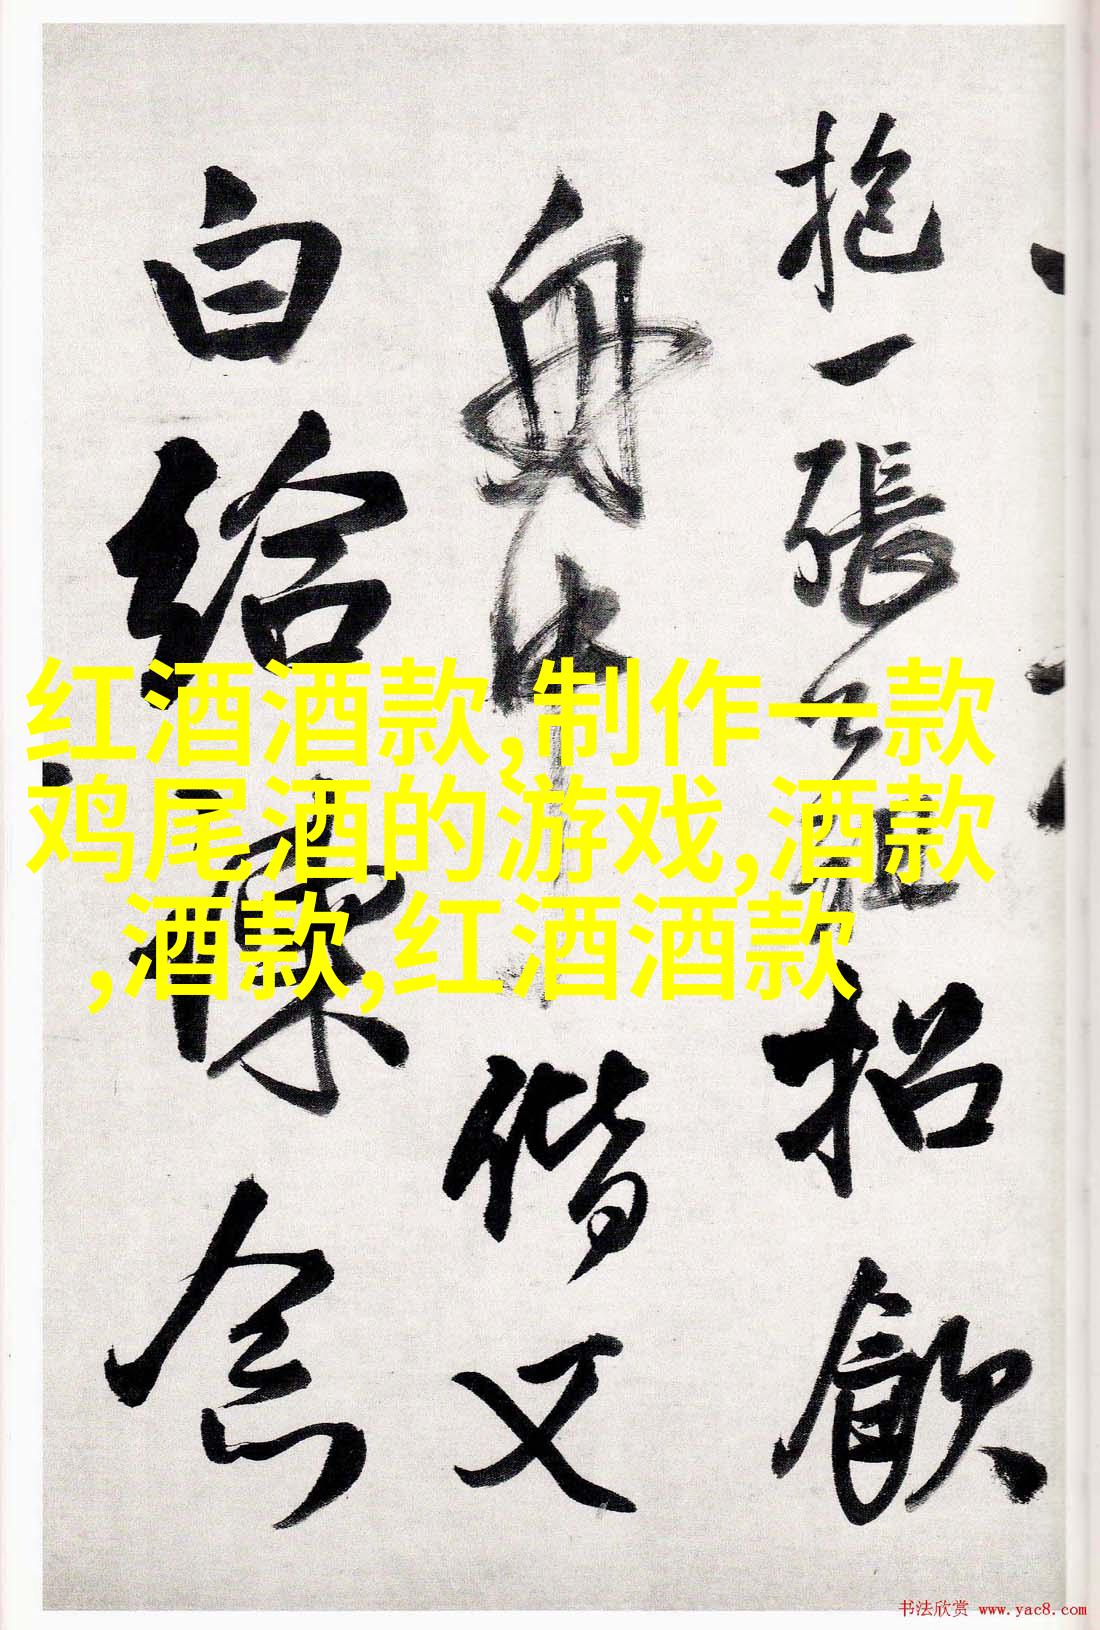 抱一張公祖招飲
舟中偕又
白給諫念
红酒酒款,制作一款
鸡尾酒的游戏,酒款
,酒款,红酒酒款
书法欣赏 www.yac8.com